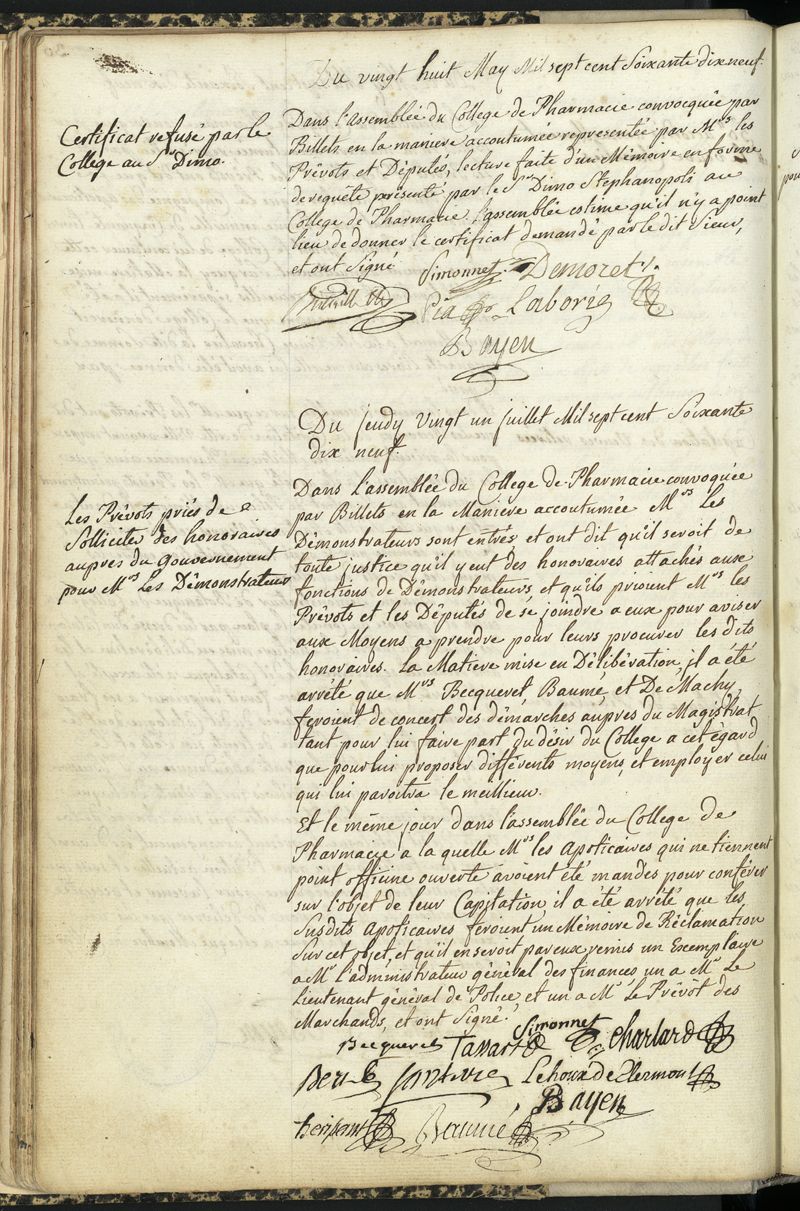 Du vingt huit May Mil sept cent Soixante dix neuf.
Certificat refusé par le
College au Sr Dimo.
Dans l'assemblée du College de Pharmacie convocquée par
Billets en la maniere accoutumée representée par Mrs les
Prévots et Députés, lecture faite d'un Mémoire en forme
de requête présenté par le Sr Dimo Stephanopoli au
College de Pharmacie, l'assemblée estime qu'il n'y a point
lieu de donner le certificat demandé par le dit Sieur,
et ont Signé
Simonnet Demoret
Pia Laborie
Bayen
Du jeudy Vingt un juillet Mil sept cent Soixante
dix neuf.
Les Prévots priés de
Solliciter des honoraires
aupres du Gouvernement
pour Mrs Les Démonstrateurs
Dans l'assemblée du College de Pharmacie convoquée
par Billets en la Maniere accoutumée Mrs Les
Démonstrateurs sont entrés et ont dit qu'il seroit de
toute justice qu'il y eut des honoraires attachés aux
fonctions de Démonstrateurs, et qu'ils prioient Mrs les
Prévots et les Députés de se joindre a eux pour aviser
aux Moyens a prendre pour leurs procurer les dits
honoraires. La Matiere mise en Délibération, il a été
arrêté que Mrs Becqueret Baumé et De Machy,
feroient de concert des démarches aupres du Magistrat
tant pour lui faire part du désir du College a cet égard
que pour lui proposer différents moyens, et employer celui
qui lui paroitra le meillieur.
Et le même jour dans l'assemblée du College de
Pharmacie a la quelle Mrs les Apoticaires qui ne tiennent
point officine ouverte avoient été mandés pour conférer
sur l'objet de leur Capitation il a été arrêté que les
Susdits Apoticaires feroient un Mémoire de Réclamation
Sur cet objet, et qu'il en seroit par eux remis un Exemplaire
a Mr L'administrateur général des finances un a Mr Le
Lieutenant général de Police et un a Mr Le Prévôt des
Marchands, et ont Signé.
Simonnet
Becqueret Tassart Charlard
Lehoux de Clermont
Bayen
Baumé